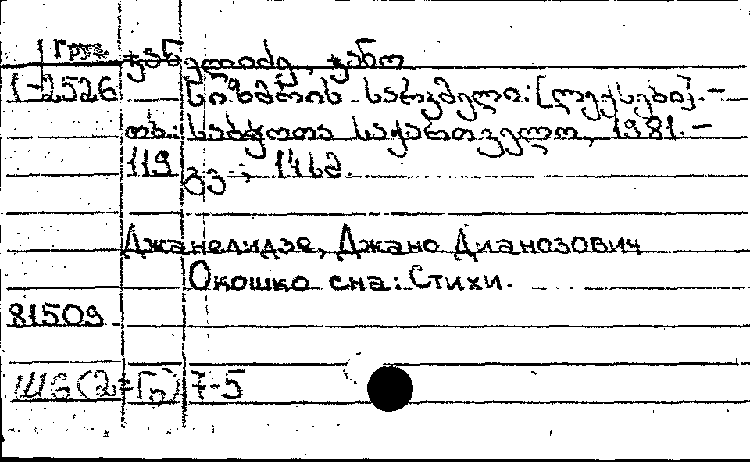 Груз. ჯანელიძე, ჯანო
1-2526 სიზმრის სარკმელი: [ლექსები]. –
თბ.: საბჭოთა საქართველო, 1981. –
119 გვ.; 14 სმ.
Джанелидзе, Джано Дианозович
Окошко сна: Стихи.
81509
Ш6(2=Гр)7-5